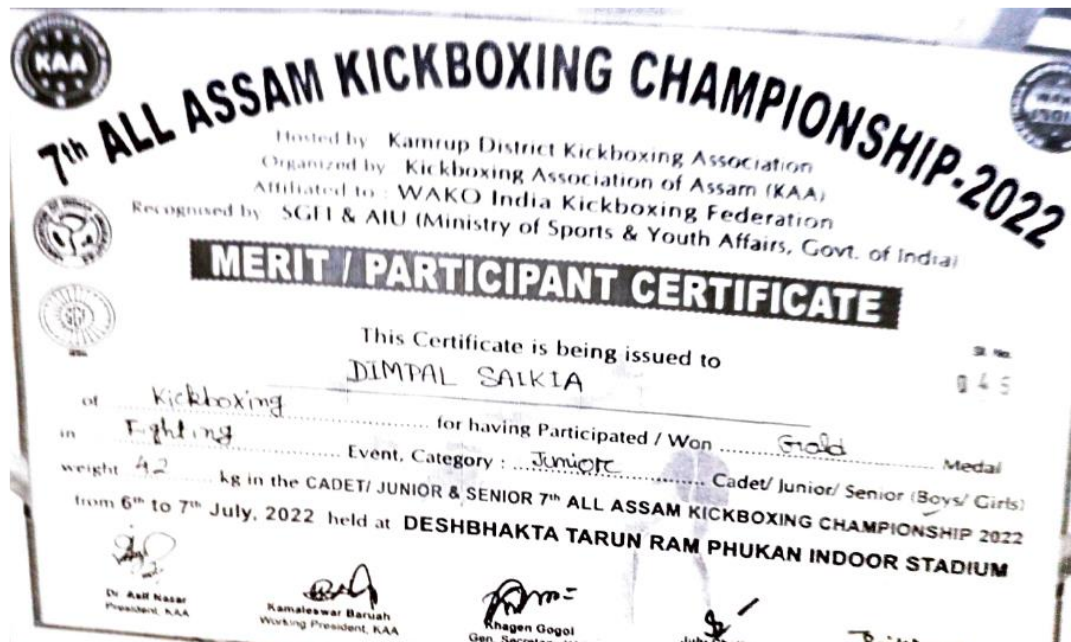 KAA
7th ALL ASSAM KICKBOXING CHAMPIONSHIP-2022
Hosted by Kamrup District Kickboxing Association
Organized by Kickboxing Association of Assam (KAA)
Affiliated to : WAKO India Kickboxing Federation
Recognised by SGFI & AIU (Ministry of Sports & Youth Affairs, Govt. of India)
MERIT / PARTICIPANT CERTIFICATE
This Certificate is being issued to
Sl. No.
DIMPAL SAIKIA
045
of Kickboxing for having Participated / Won Gold Medal
in Fighting Event, Category : Junior Cadet/ Junior/ Senior (Boys/ Girls)
weight 42 kg in the CADET/ JUNIOR & SENIOR 7th ALL ASSAM KICKBOXING CHAMPIONSHIP 2022
from 6th to 7th July, 2022 held at DESHBHAKTA TARUN RAM PHUKAN INDOOR STADIUM
Dr. Asif Nasar
President, KAA
Kamaleswar Baruah
Working President, KAA
Khagen Gogoi